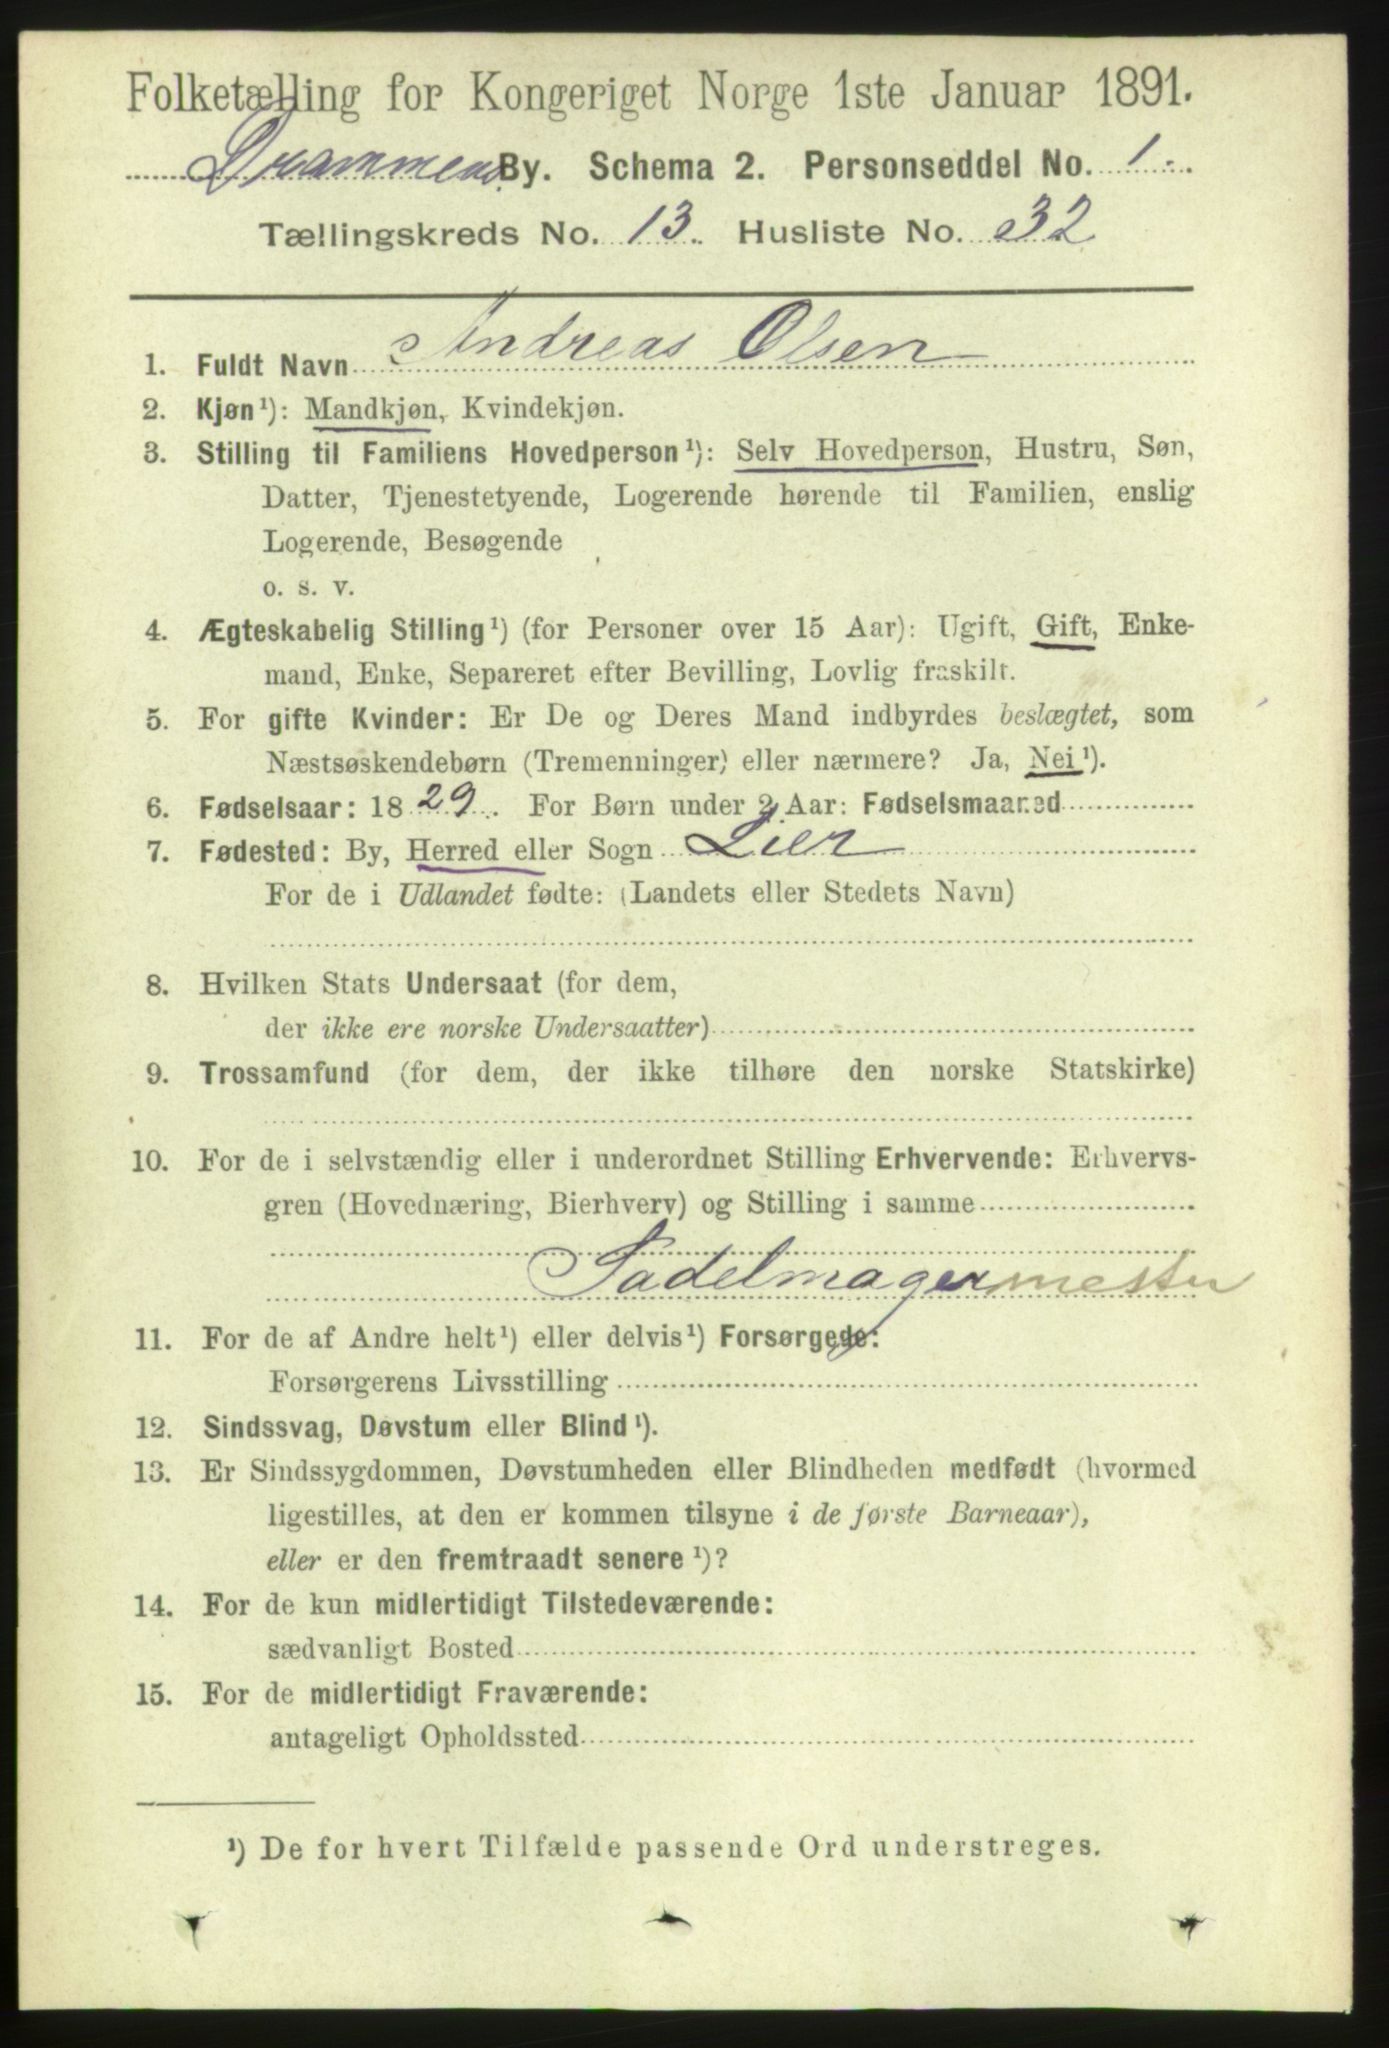 Folketælling for Kongeriget Norge 1ste Januar 1891.
Drammens By. Schema 2. Personseddel No. 1.
Tællingskreds No. 13. Husliste No. 32
1. Fuldt Navn Andreas Olsen
2. Kjøn¹): Mandkjøn, Kvindekjøn.
3. Stilling til Familiens Hovedperson¹): Selv Hovedperson, Hustru, Søn,
Datter, Tjenestetyende, Logerende hørende til Familien, enslig
Logerende, Besøgende
o. s. v.
4. Ægteskabelig Stilling¹) (for Personer over 15 Aar): Ugift, Gift, Enke-
mand, Enke, Separeret efter Bevilling, Lovlig fraskilt.
5. For gifte Kvinder: Er De og Deres Mand indbyrdes beslægtet, som
Næstsøskendebørn (Tremenninger) eller nærmere? Ja, Nei¹).
6. Fødselsaar: 1829. For Børn under 2 Aar: Fødselsmaaned
7. Fødested: By, Herred eller Sogn Lier
For de i Udlandet fødte: (Landets eller Stedets Navn)
8. Hvilken Stats Undersaat (for dem,
der ikke ere norske Undersaatter)
9. Trossamfund (for dem, der ikke tilhøre den norske Statskirke)
10. For de i selvstændig eller i underordnet Stilling Erhvervende: Erhvervs-
gren (Hovednæring, Bierhverv) og Stilling i samme
Sadelmagermester
11. For de af Andre helt¹) eller delvis¹) Forsørgede:
Forsørgerens Livsstilling
12. Sindssvag, Døvstum eller Blind¹).
13. Er Sindssygdommen, Døvstumheden eller Blindheden medfødt (hvormed
ligestilles, at den er kommen tilsyne i de første Barneaar),
eller er den fremtraadt senere¹)?
14. For de kun midlertidigt Tilstedeværende:
sædvanligt Bosted
15. For de midlertidigt Fraværende:
antageligt Opholdssted
¹) De for hvert Tilfælde passende Ord understreges.